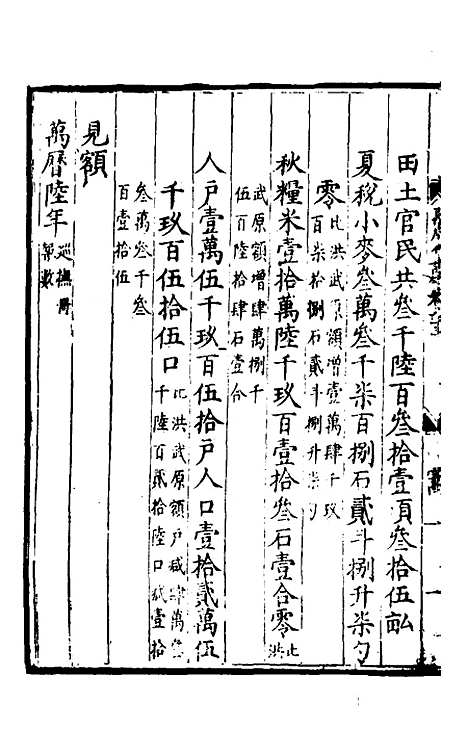 田土官民共叁千陸百叁拾壹頃叁拾伍畝
夏稅小麥叁萬叁千柒百捌石貳斗捌升柒勺
零比洪武原額增壹萬肆千玖
百柒拾捌石貳斗捌升柒勺
秋糧米壹拾萬陸千玖百壹拾叁石壹合零比洪
武原額增肆萬捌千
伍百陸拾肆石壹合
人戶壹萬伍千玖百伍拾戶人口壹拾貳萬伍
千玖百伍拾伍口比洪武原額戶減肆萬
千陸百貳拾陸口減壹拾
叁萬叁千叁
百壹拾伍
見額
萬曆陸年巡撫冊
報數